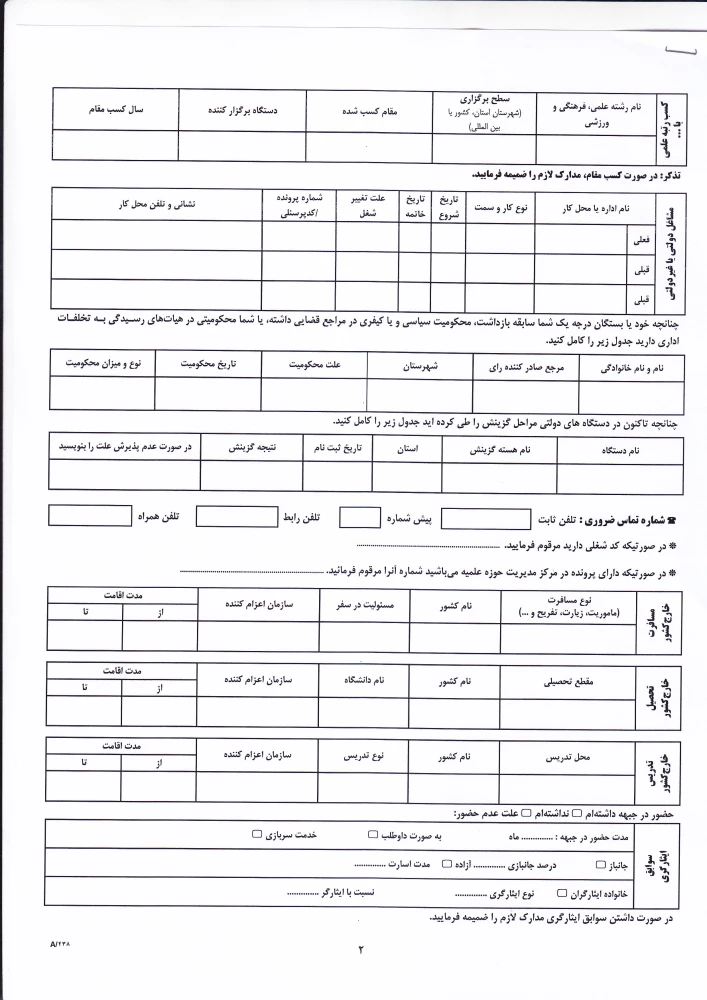 کسب رتبه علمی یا ...
نام رشته علمی، فرهنگی و ورزشی
سطح برگزاری (شهرستان استان، کشور یا بین المللی)
مقام کسب شده
دستگاه برگزار کننده
سال کسب مقام
تذکر: در صورت کسب مقام، مدارک لازم را ضمیمه فرمایید.
مشاغل دولتی یا غیردولتی
نام اداره یا محل کار
نوع کار و سمت
تاریخ شروع
تاریخ خاتمه
علت تغییر شغل
شماره پرونده /کدپرسنلی
نشانی و تلفن محل کار
فعلی
قبلی
قبلی
چنانچه خود یا بستگان درجه یک شما سابقه بازداشت، محکومیت سیاسی و یا کیفری در مراجع قضایی داشته، یا شما محکومیتی در هیات‌های رسـیدگی بـه تخلفـات
اداری دارید جدول زیر را کامل کنید.
نام و نام خانوادگی
مرجع صادر کننده رای
شهرستان
علت محکومیت
تاریخ محکومیت
نوع و میزان محکومیت
چنانچه تاکنون در دستگاه های دولتی مراحل گزینش را طی کرده اید جدول زیر را کامل کنید.
نام دستگاه
نام هسته گزینش
استان
تاریخ ثبت نام
نتیجه گزینش
در صورت عدم پذیرش علت را بنویسید
☎ شماره تماس ضروری : تلفن ثابت
پیش شماره
تلفن رابط
تلفن همراه
❊ در صورتیکه کد شغلی دارید مرقوم فرمایید. ......................................................
❊ در صورتیکه دارای پرونده در مرکز مدیریت حوزه علمیه می‌باشید شماره آنرا مرقوم فرمائید. ......................................................
مسافرت خارج‌کشور
نوع مسافرت (ماموریت، زیارت، تفریح و ...)
نام کشور
مسئولیت در سفر
سازمان اعزام کننده
مدت اقامت
از
تا
تحصیل خارج‌کشور
مقطع تحصیلی
نام کشور
نام دانشگاه
سازمان اعزام کننده
مدت اقامت
از
تا
تدریس خارج‌کشور
محل تدریس
نام کشور
نوع تدریس
سازمان اعزام کننده
مدت اقامت
از
تا
حضور در جبهه داشته‌ام ☐ نداشته‌ام ☐ علت عدم حضور:
سوابق ایثارگری
مدت حضور در جبهه : ............. ماه به صورت داوطلب ☐ خدمت سربازی ☐
جانباز ☐ درصد جانبازی ............. آزاده ☐ مدت اسارت .............
خانواده ایثارگران ☐ نوع ایثارگری ............. نسبت با ایثارگر .............
در صورت داشتن سوابق ایثارگری مدارک لازم را ضمیمه فرمایید.
A/۲۳۸
۲